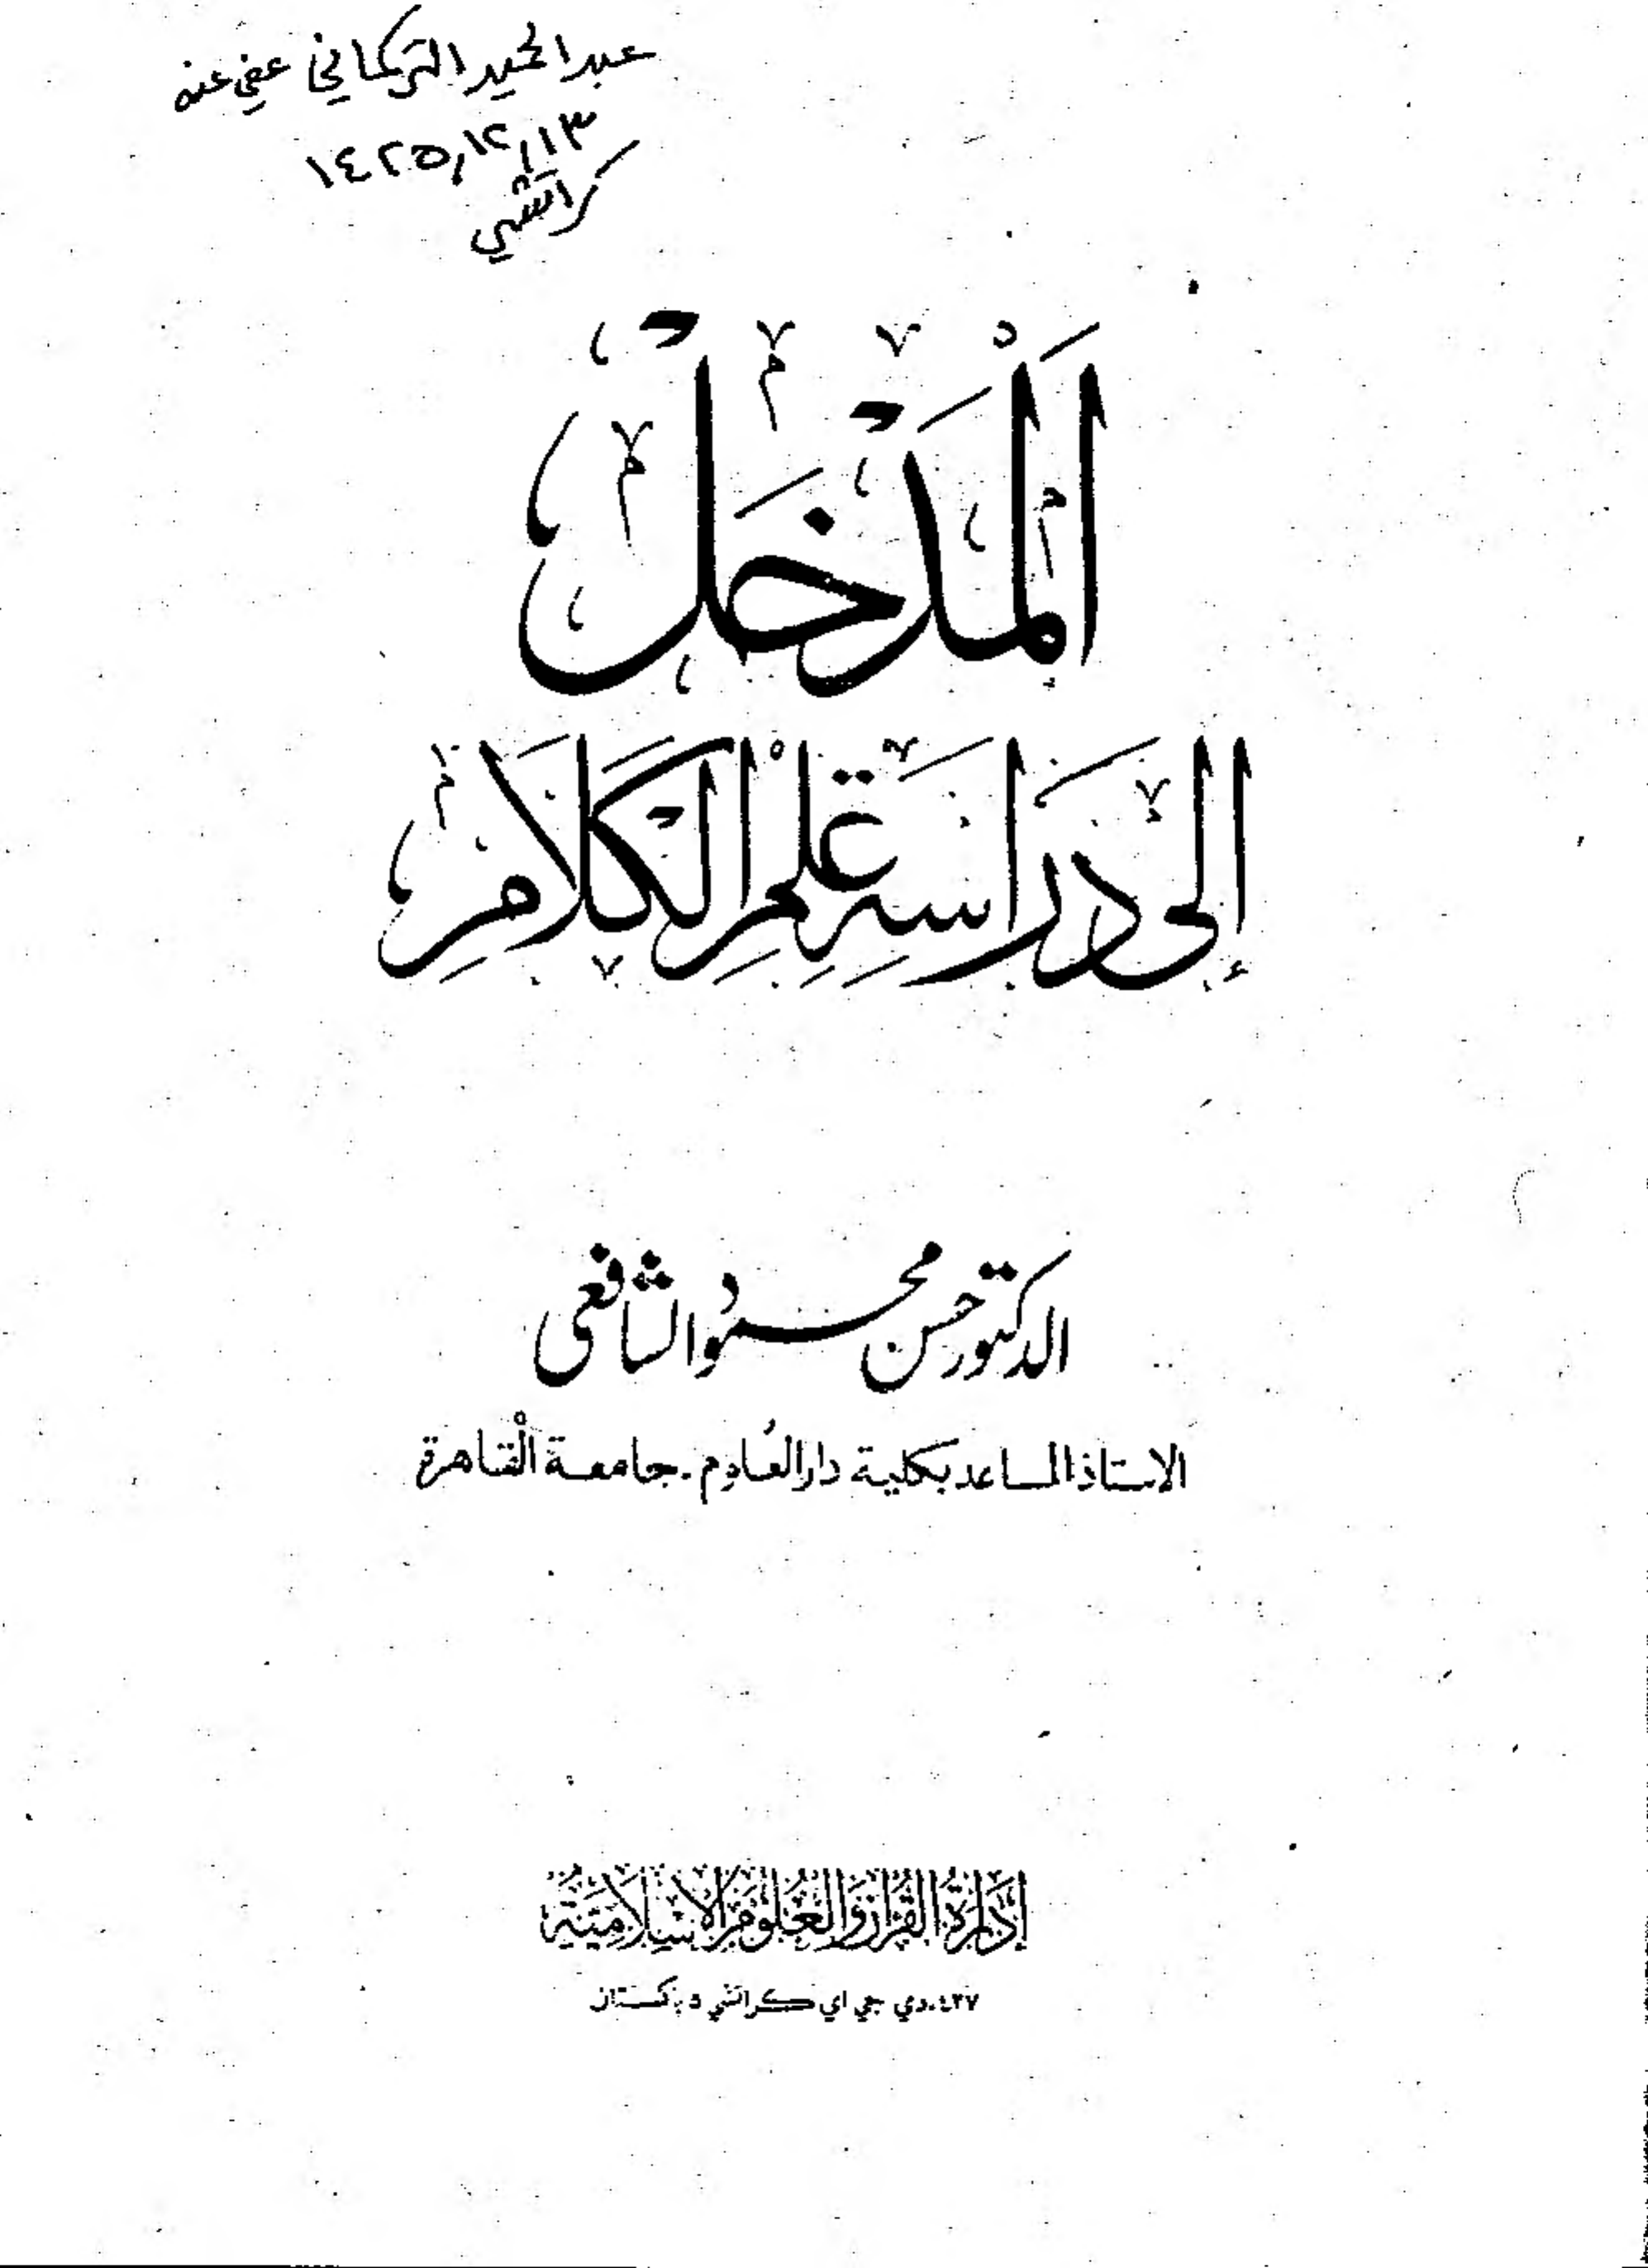 عبد الحميد التركماني عفي عنه
١٤٢٥,١٢,١٣
كراتشي
اَلْمَدْخَلْ
إلى دَرَاسَةِ عِلْمِ الكَلَامِ
الدكتور حسن محمود الشافعى
الاستاذ المساعد بكلية دار العُلوم - جامعة الْقاهرة
إدارة القرآن والعلوم الإسلامية
٤٣٧، دي جي اي كراتشي ٥ باكستان